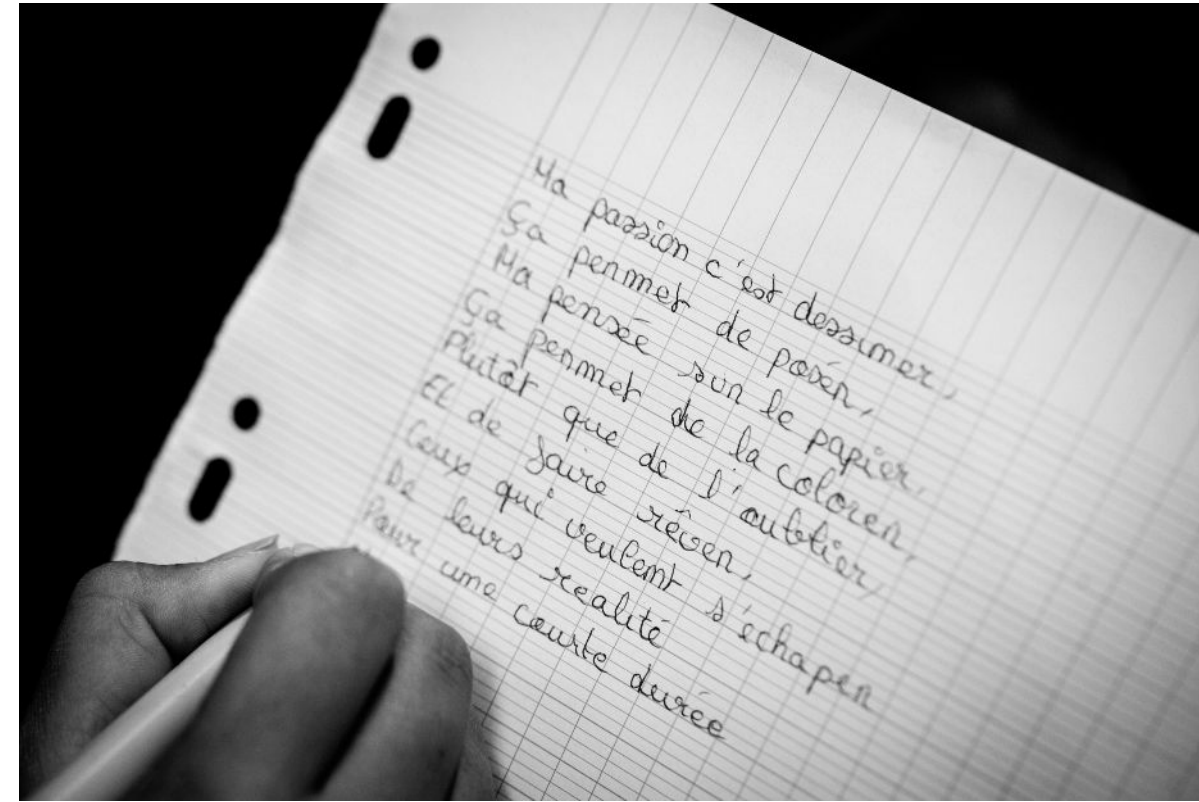 Ma passion c'est dessiner,
Ça permet de poser,
Ma pensée sur le papier,
Ça permet de la colorer,
Plutôt que de l'oublier,
Et de faire rêver,
Ceux qui veulent s'échaper
De leurs realité
Pour une courte durée